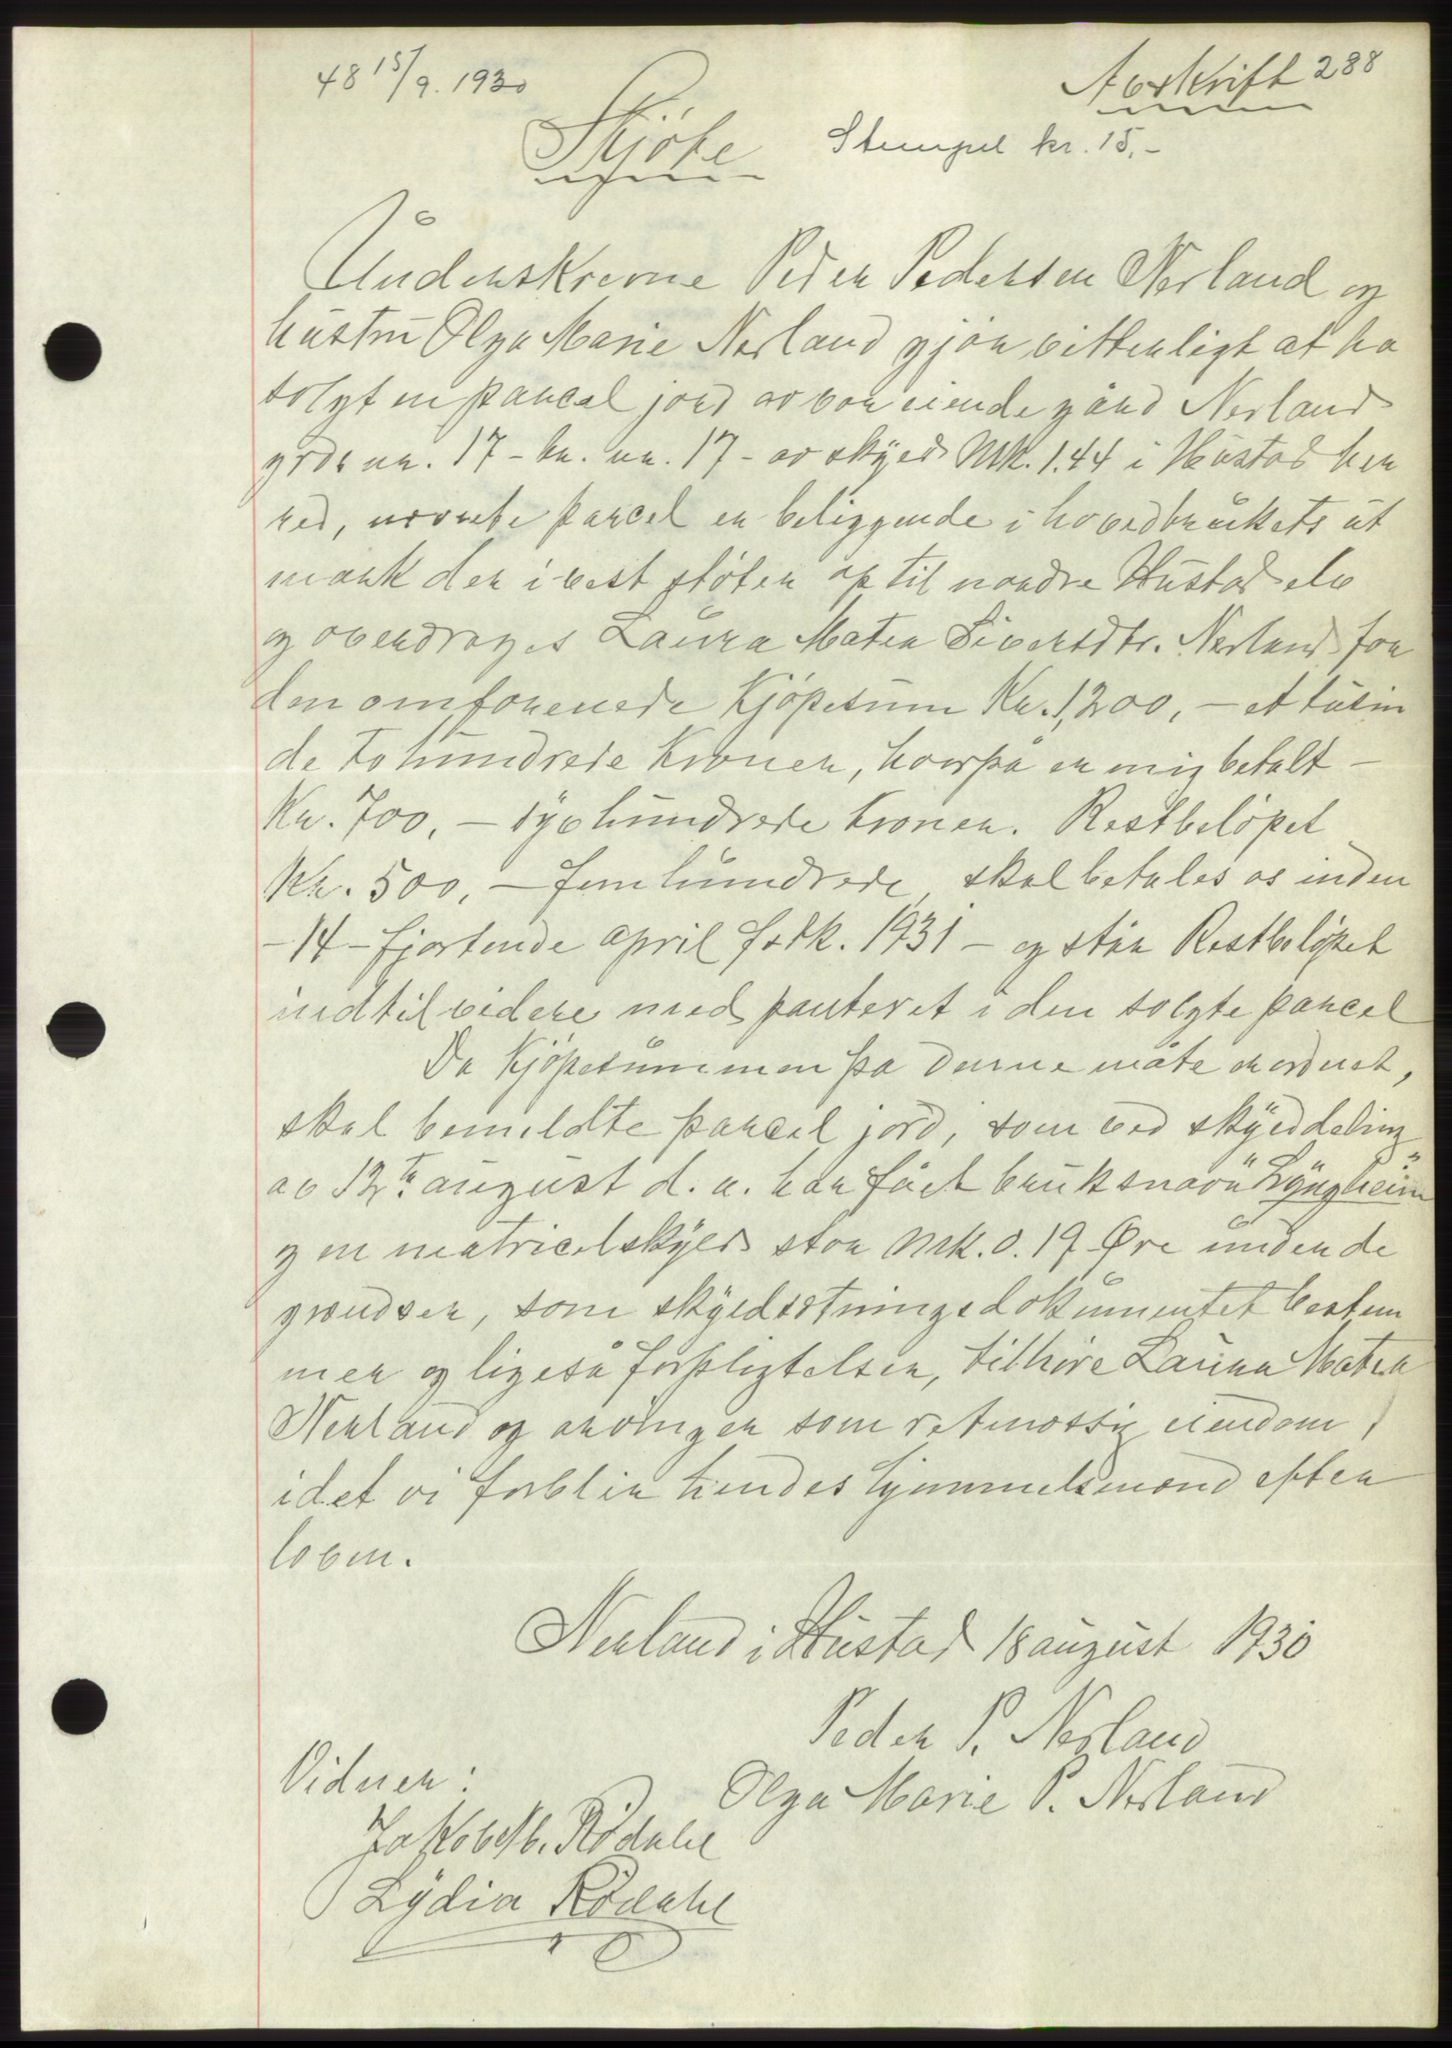 48 15/9. 1930
Avskrift 288
Skjöte
Stempel kr. 15,-
Underskrevne Peder Pedersen Nerland og
hustru Olga Marie Nerland gjör vitterligt at ha
solgt en parcel jord av vor eiende gård Nerland
grds nr. 17 - br. nr. 17 - av skyld Mk. 1.44 i Hustad her
red, nævnte parcel er beliggende i hovedbrukets ut
mark der i vest støter op til nordre Hustad elv
og overdrages Laura Matea Sivertsdtr. Nerland for
den omforenede Kjöpesum Kr. 1,200,- et tusin
de to hundrede Kroner, hvorpå er mig betalt -
Kr. 700,- syv hundrede Kroner. Restbelöpet
Kr. 500,- fem hundrede, skal betales os inden
- 14 - fjortende april fstk. 1931 - og står Restbelöpet
indtil videre med panteret i den solgte parcel
Da Kjöpesummen på denne måte er ordnet,
skal bemeldte parcel jord, som ved skylddeling
av 12te august d. a. har fået bruksnavn "Lyngheim"
og en matricelskyld stor Mk. 0.19 Øre under de
grændser, som skyldsætningsdokumentet bestem
mer og ligeså forpligtelser, tilhöre Laura Matea
Nerland og arvinger som retmæssig eiendom,
idet vi forblir hendes hjemmelsmænd efter
loven.
Nerland i Hustad 18 august 1930
Peder P. Nerland
Olga Marie P. Nerland
Vidner:
Jakob M. Rödahl
Lydia Rödahl